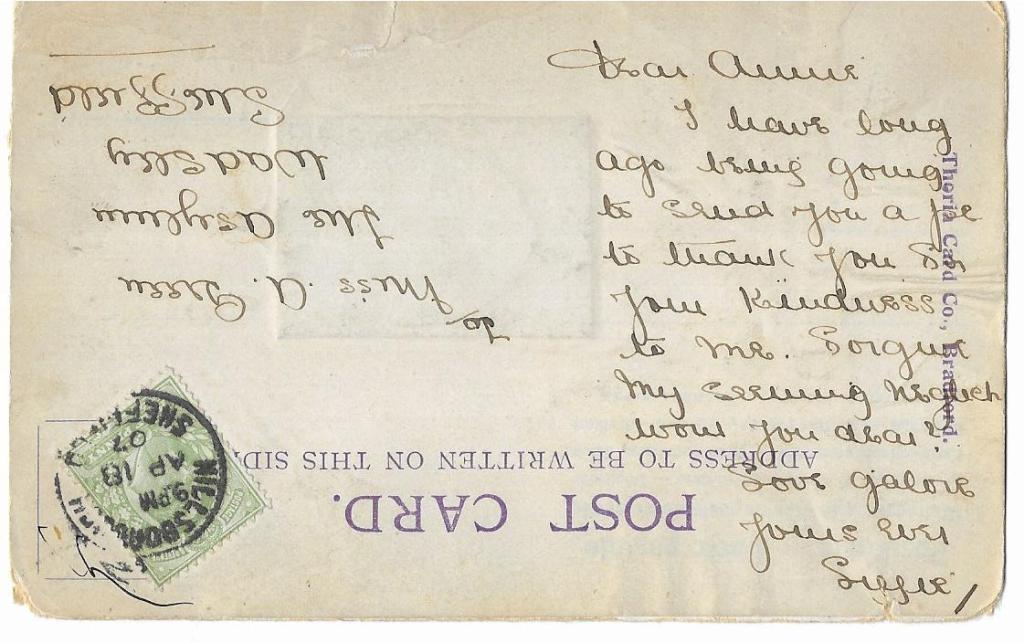 Dear Annie
I have long
ago being going
to send you a pc
to thank you for
your kindness
to me. Forgive
my seeming neglect
wont you dear?
Love galore
Yours ever
Susie
Theria Card Co., Bradford.
POST CARD.
ADDRESS TO BE WRITTEN ON THIS SIDE
HILLSBOROUGH
9PM
AP 18
07
SHEFFIELD
To
Miss. A. Green
The Asylum
Wadsley
Sheffield